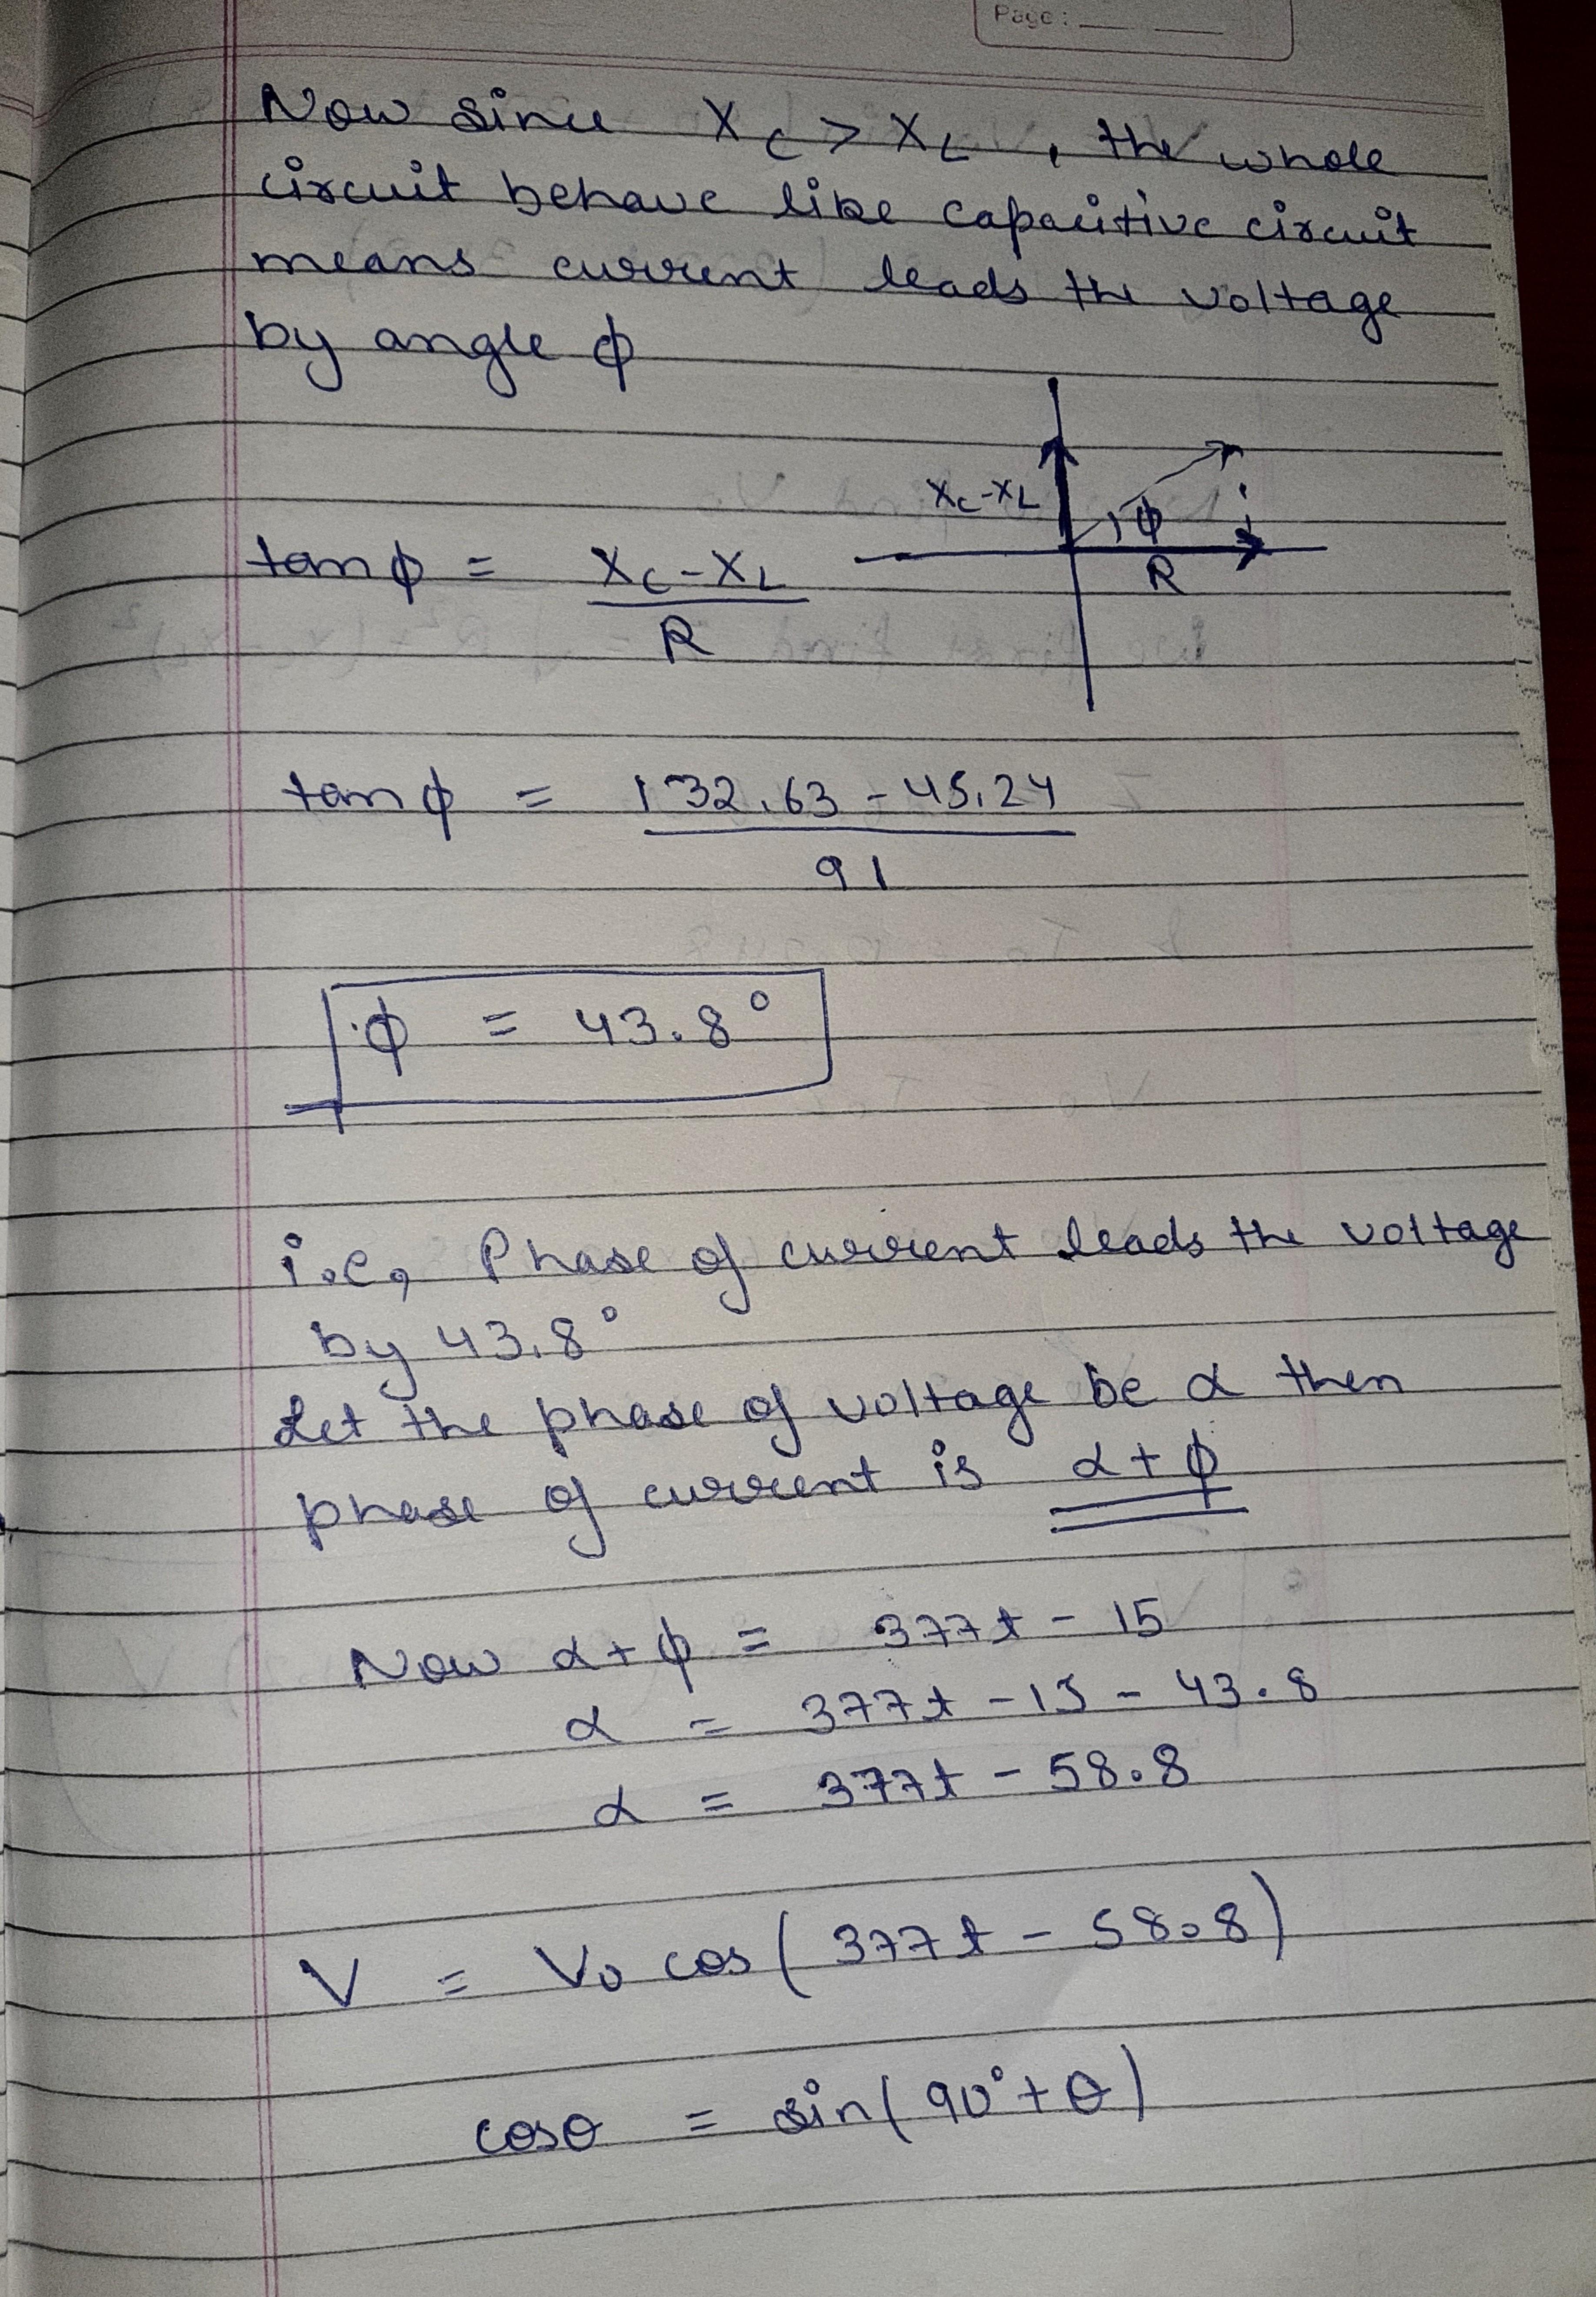 Page :
Now since X_C > X_L , the whole
circuit behave like capacitive circuit
means current leads the voltage
by angle ϕ
X_C-X_L
ϕ
i
R
tanϕ = X_C-X_L
R
tanϕ = 132.63 - 45.24
91
ϕ = 43.8°
i.e, Phase of current leads the voltage
by 43.8°
Let the phase of voltage be α then
phase of current is α+ϕ
Now α+ϕ = 377t - 15
α = 377t - 15 - 43.8
α = 377t - 58.8
V = V₀ cos(377t - 58.8)
cosθ = sin(90°+θ)